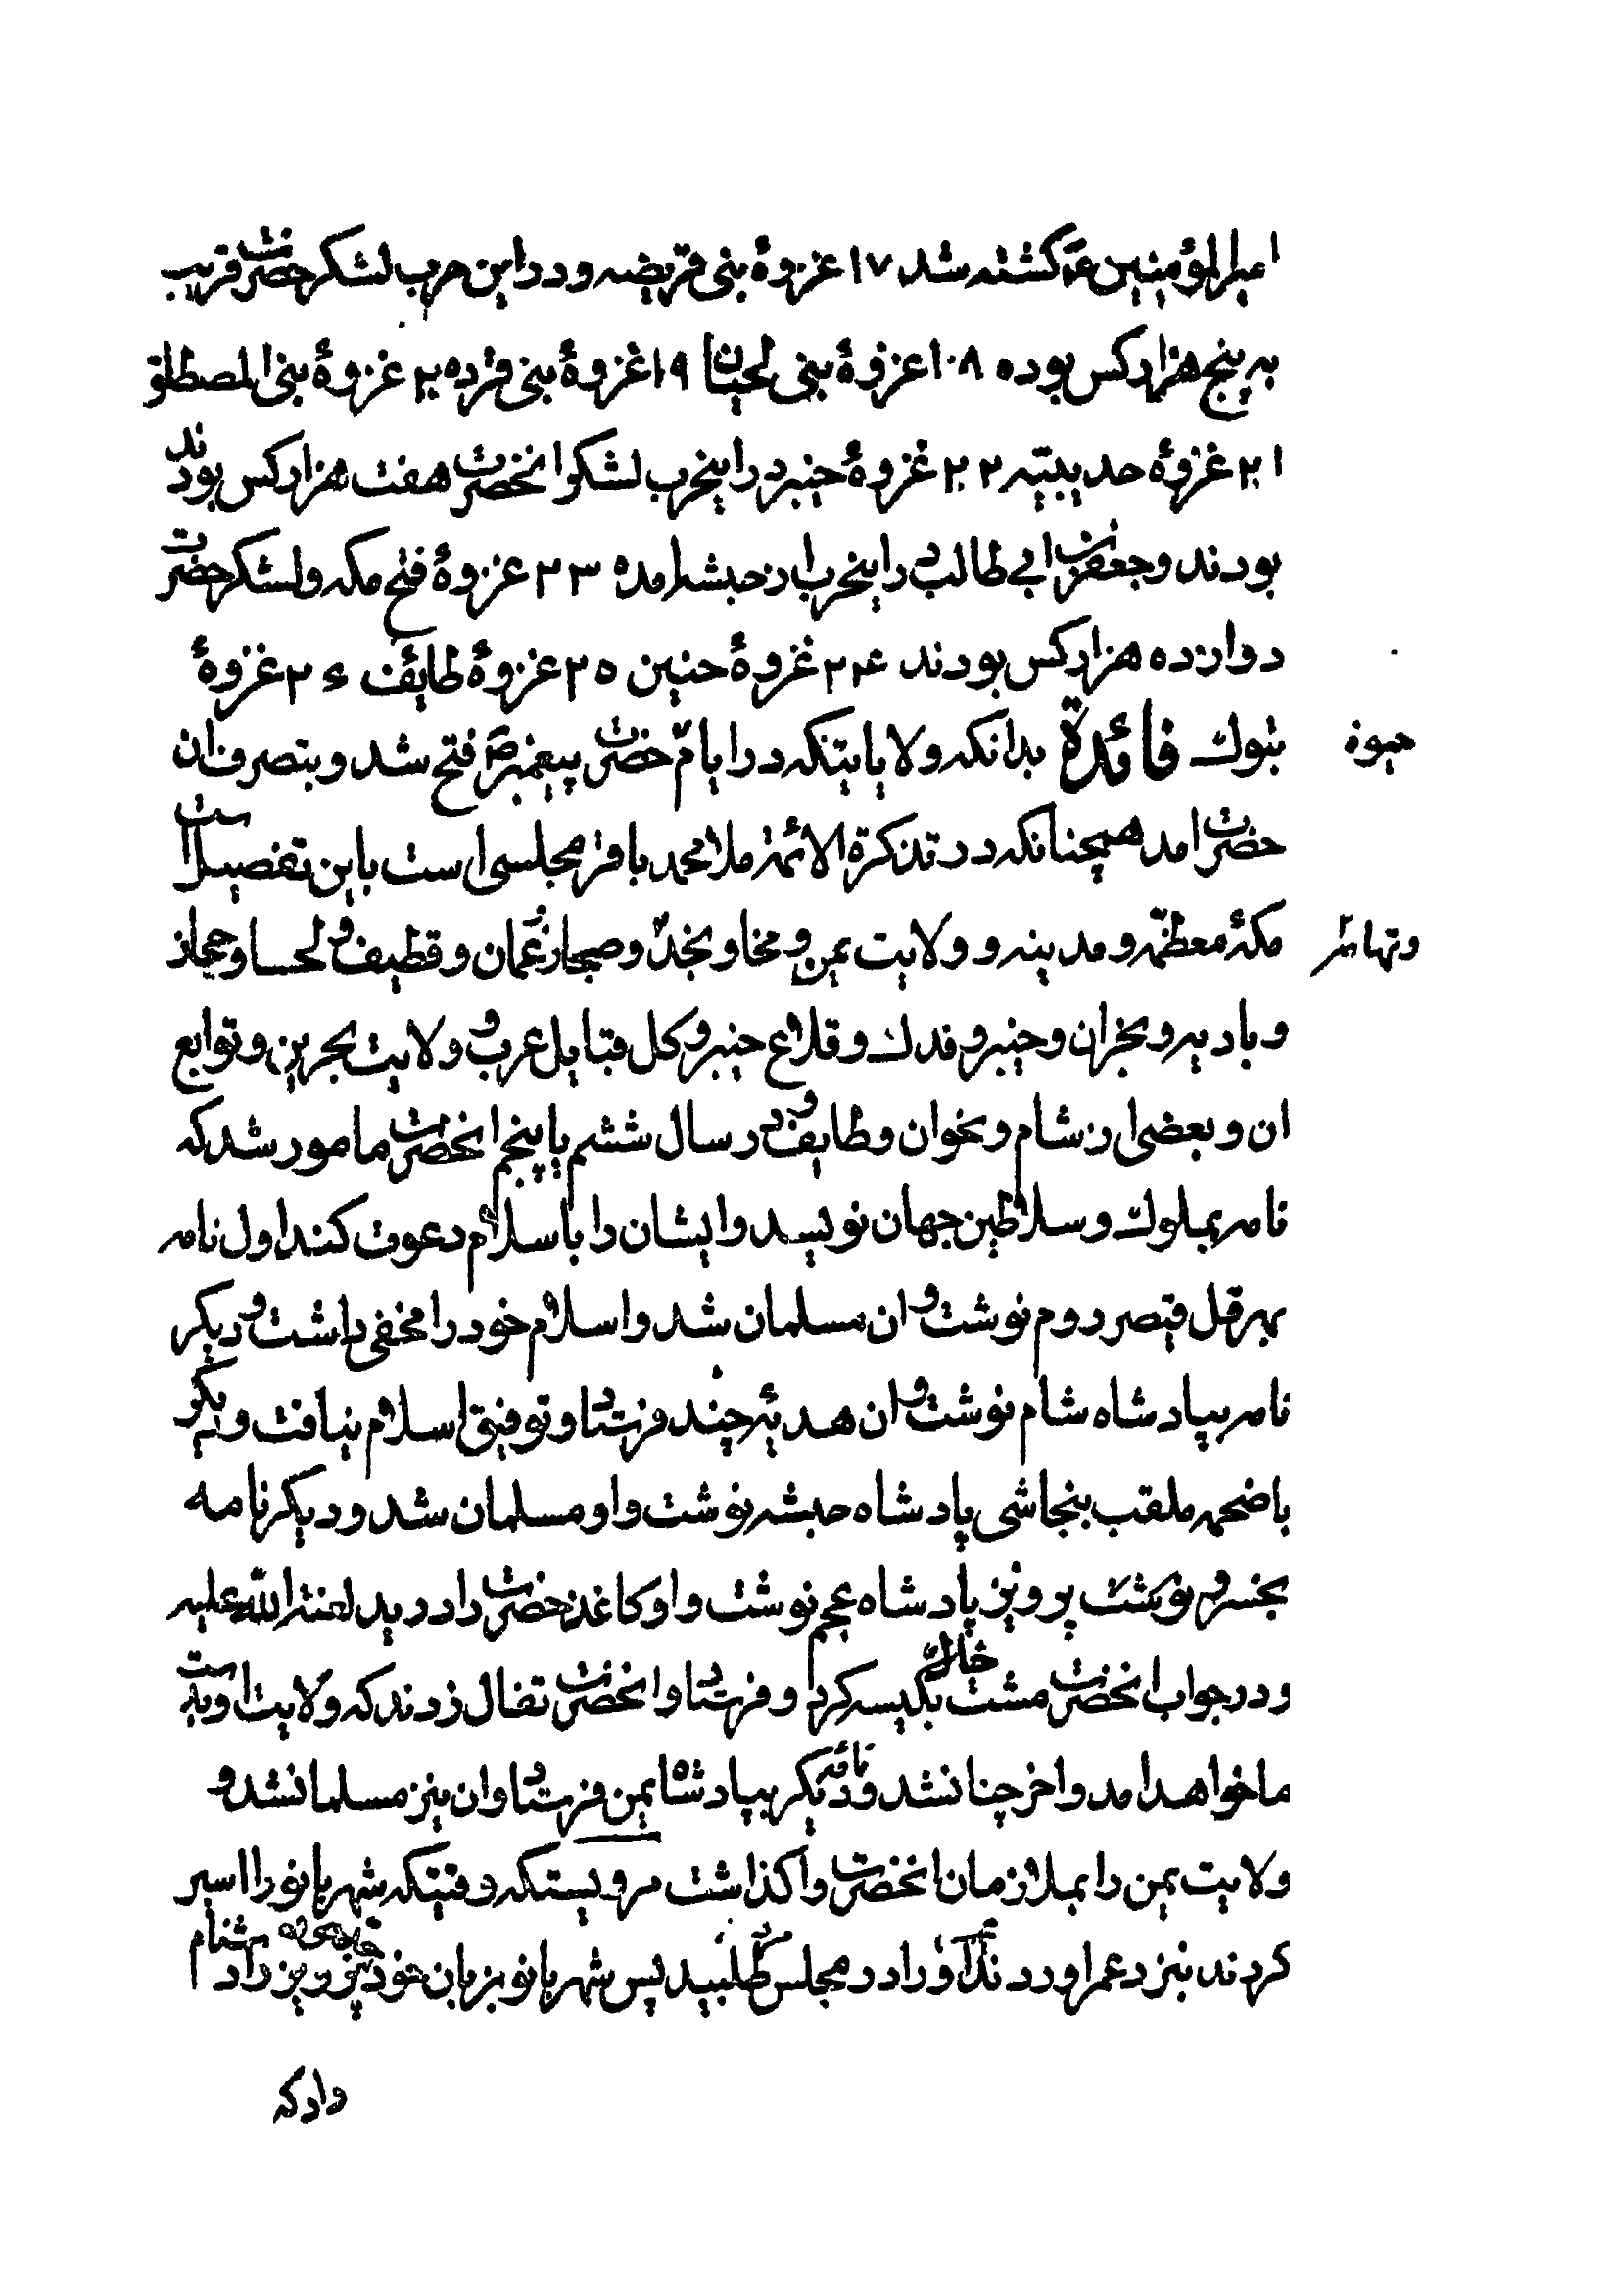 امیرالمؤمنین ع کشته شد ۱۷ غزوهٔ بنی قریضه و در این حرب لشکر حضرت قریب
به پنج هزار کس بوده ۱۰۸ غزوهٔ بنی لحیان ۱۹ غزوهٔ بنی قرده ۲۰ غزوهٔ بنی المصطلق
۲۱ غزوهٔ حدیبیّه ۲۲ غزوهٔ خیبر در اینحرب لشکر انحضرت هفت هزار کس بودند
بودند و جعفر بن ابی طالب در اینحرب از حبشه امده ۲۳ غزوهٔ فتح مکه و لشکر حضرت
دوازده هزار کس بودند ۲۴ غزوهٔ حنین ۲۵ غزوهٔ طایف ۲۶ غزوهٔ
تبوک فائدة بدانکه ولایاتیکه در ایام حیوة حضرت پیغمبر ص فتح شد و بتصرف ان
حضرت امد همچنانکه در تذکرة الائمهٔ ملا محمد باقر مجلسی است باین تفصیل است
مکهٔ معظمه و مدینه و ولایت یمن و مخا و نجد و تهامه و صحار و عمان و قطیف و لحسا و حجاز
و بادیه و نجران و خیبر و فدک و قلاع خیبر و کل قبایل عرب و ولایت بحرین و توابع
ان و بعضی از شام و نخوان و طایف و در سال ششم یا پنجم انحضرت مامور شد که
نامه بملوک و سلاطین جهان نویسد و ایشان را باسلام دعوت کند اول نامه
بهرقل قیصر روم نوشت و ان مسلمان شد و اسلام خود را مخفی داشت و دیکر
نامه بپادشاه شام نوشت و ان هدیهٔ چند فرستاد و توفیق اسلام نیافت و دیکر
باضحمه ملقب بنجاشی پادشاه حبشه نوشت و او مسلمان شد و دیکر نامه
بخسرو پرویز پادشاه عجم نوشت و او کاغذ حضرت را درید لعنة الله علیه
و در جواب انحضرت مشت خاک بکیسه کرد و فرستاد و انحضرت تفال زدند که ولایت او بدست
ما خواهد امد و اخر چنان شد و نامه دیکر بپادشاه یمن فرستاد و ان نیز مسلمان شد و
ولایت یمن را بملازمان انحضرت واکذاشت مرویستکه وقتیکه شهربانو را اسیر
کردند نزد عمر اوردند او را در مجلس طلبید پس شهربانو بزبان خود پرویز را دشنام
داد که